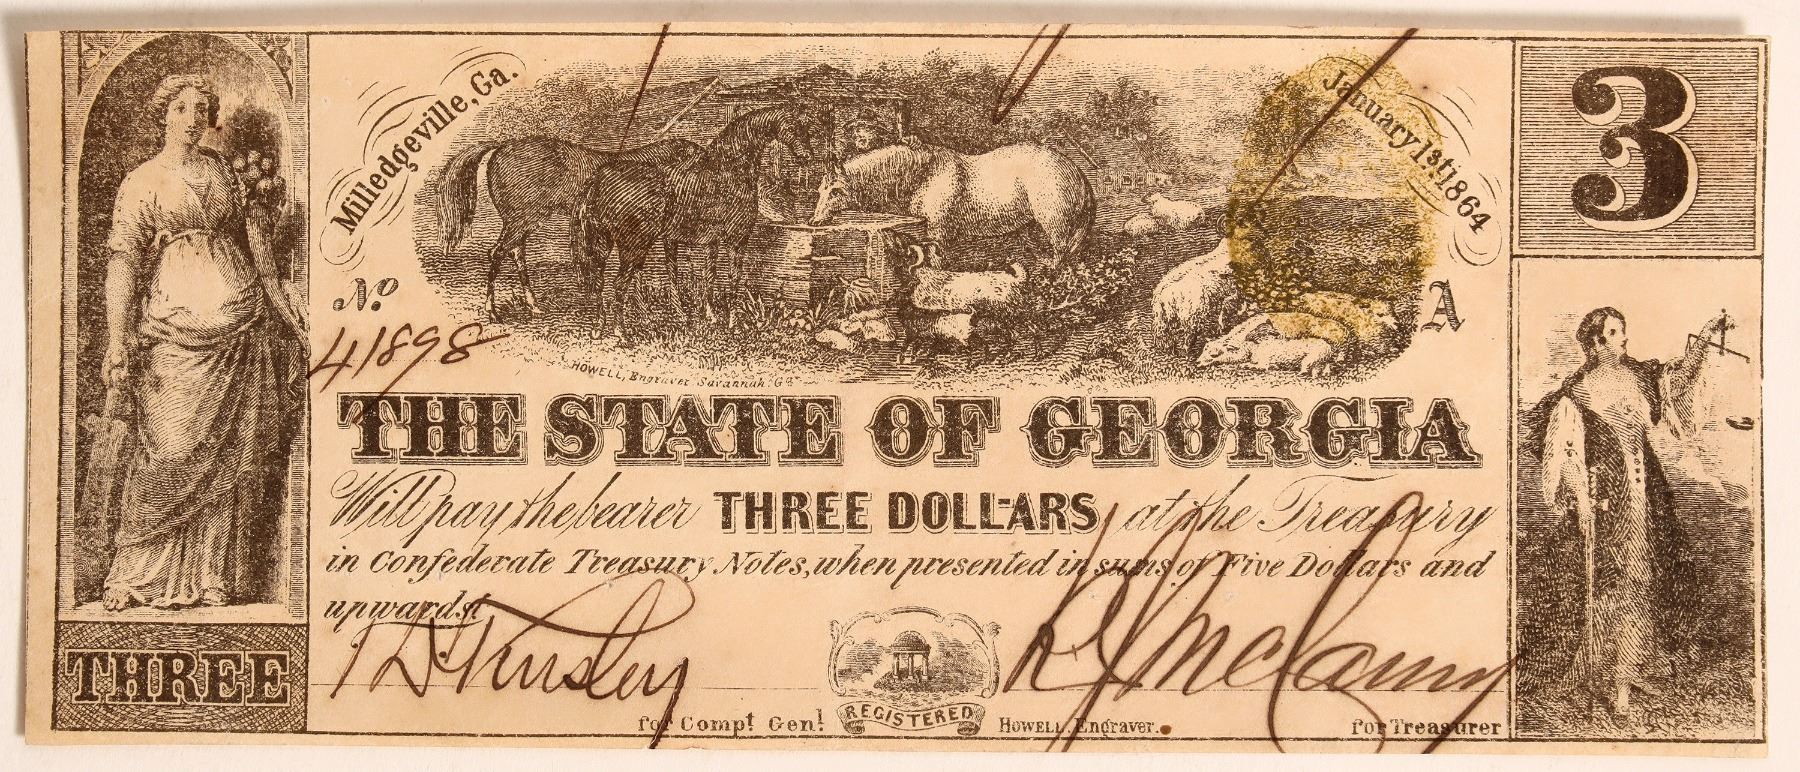 Milledgeville, Ga.
January 1st 1864
3
No
41898
A
HOWELL, Engraver Savannah. Ga
THE STATE OF GEORGIA
Will pay the bearer THREE DOLLARS at the Treasury
in Confederate Treasury Notes, when presented in sums of Five Dollars and
upwards.
THREE
for Compt Genl
REGISTERED
HOWELL, Engraver.
for Treasurer